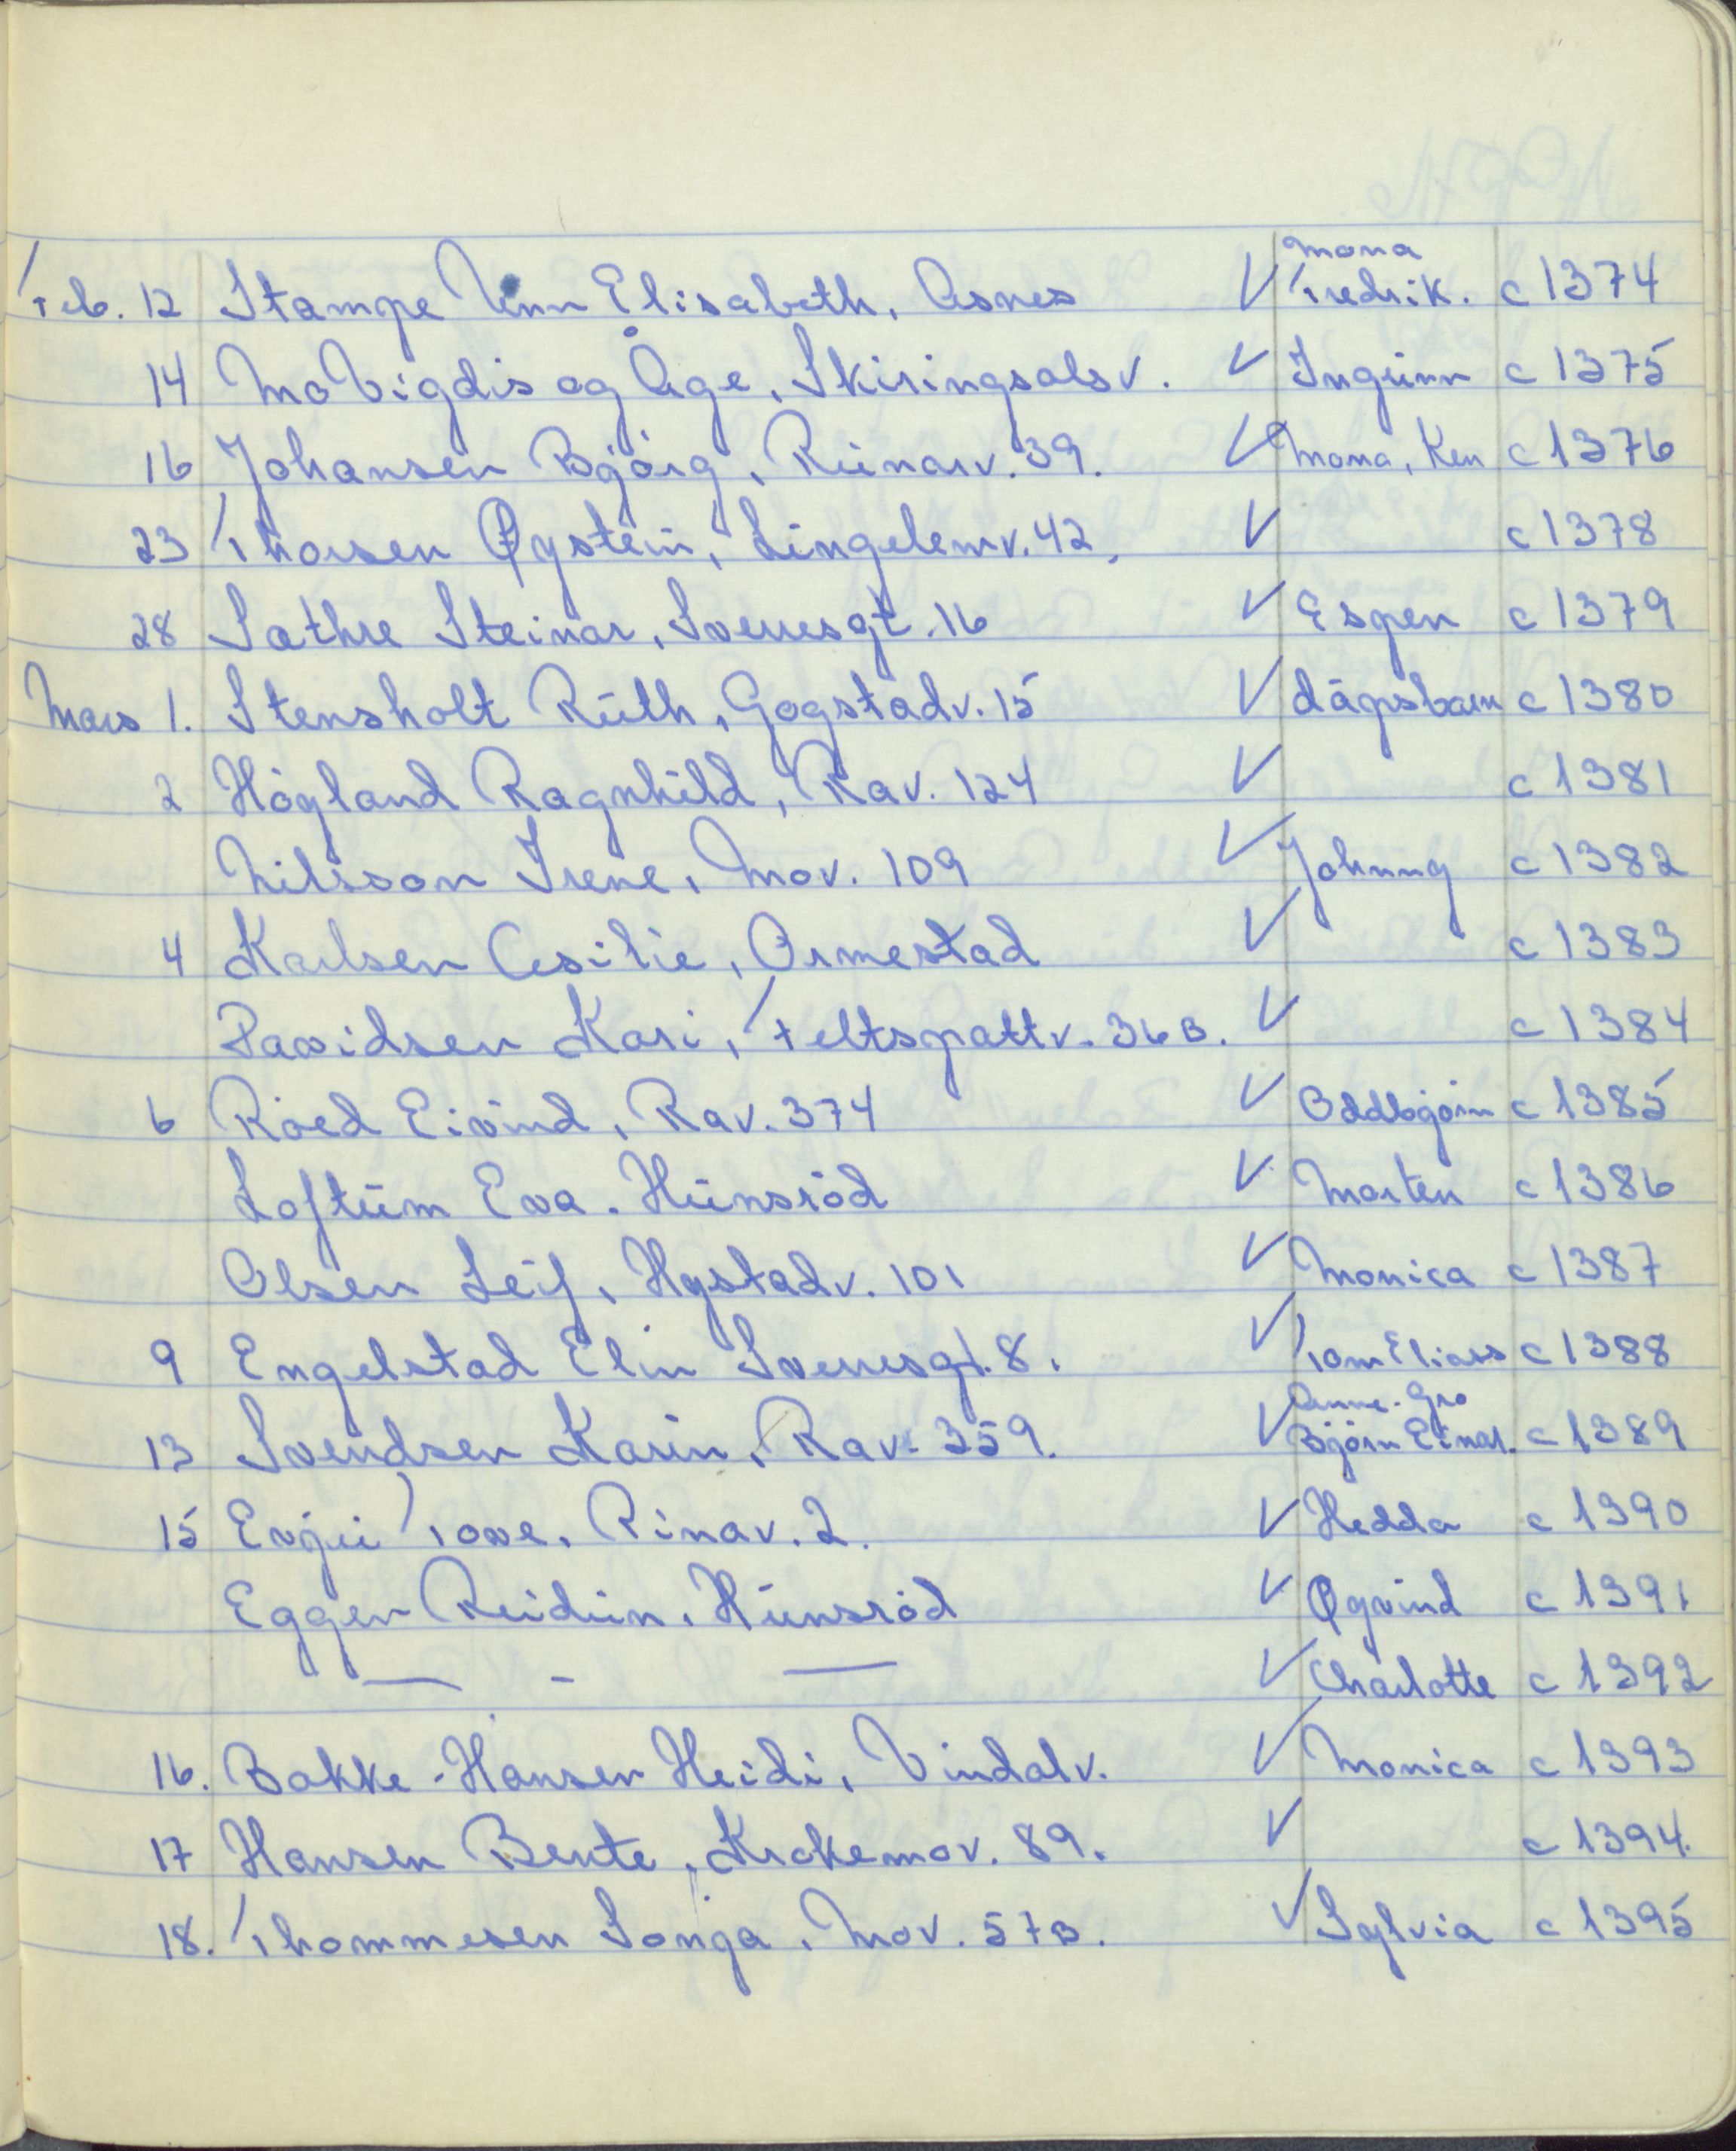 Feb. 12 Stampe Unn Elisabeth, Åsnes ✓ Mona Fredrik. c 1374
14 Mo Vigdis og Åge, Skiringsalsv. ✓ Ingunn c 1375
16 Johansen Bjørg, Runarv. 39. ✓ Mona, Ken c 1376
23 Thorsen Øystein, Lingelemv. 42, ✓ c 1378
28 Sathre Steinar, Sverresgt. 16 ✓ Espen c 1379
Mars 1. Stensholt Ruth, Gogstadv. 15 ✓ dåpsbarn c 1380
2 Högland Ragnhild, Rav. 124 ✓ c 1381
Nilsson Irene, Mov. 109 ✓ Johnny c 1382
4 Karlsen Cesilie, Ormestad ✓ c 1383
Davidsen Kari, Feltspattv. 36 B. ✓ c 1384
6 Röed Eivind, Rav. 374 ✓ Oddbjørn c 1385
Loftum Eva. Hunsröd ✓ Morten c 1386
Olsen Leif, Hystadv. 101 ✓ Monica c 1387
9 Engelstad Elin Sverresgt. 8. ✓ Tom Eliass c 1388
13 Svendsen Karin, Rav. 359. ✓ Anne-Gro Bjørn Einar. c 1389
15 Evju Tove, Rinav. 2. ✓ Hedda c 1390
Eggen Reidun, Hunsröd ✓ Øyvind c 1391
— - — ✓ Charlotte c 1392
16. Bakke-Hansen Heidi, Vindalv. ✓ Monica c 1393
17 Hansen Bente, Krokemov. 89. ✓ c 1394.
18. Thommesen Sonja, Mov. 57 B. ✓ Sylvia c 1395